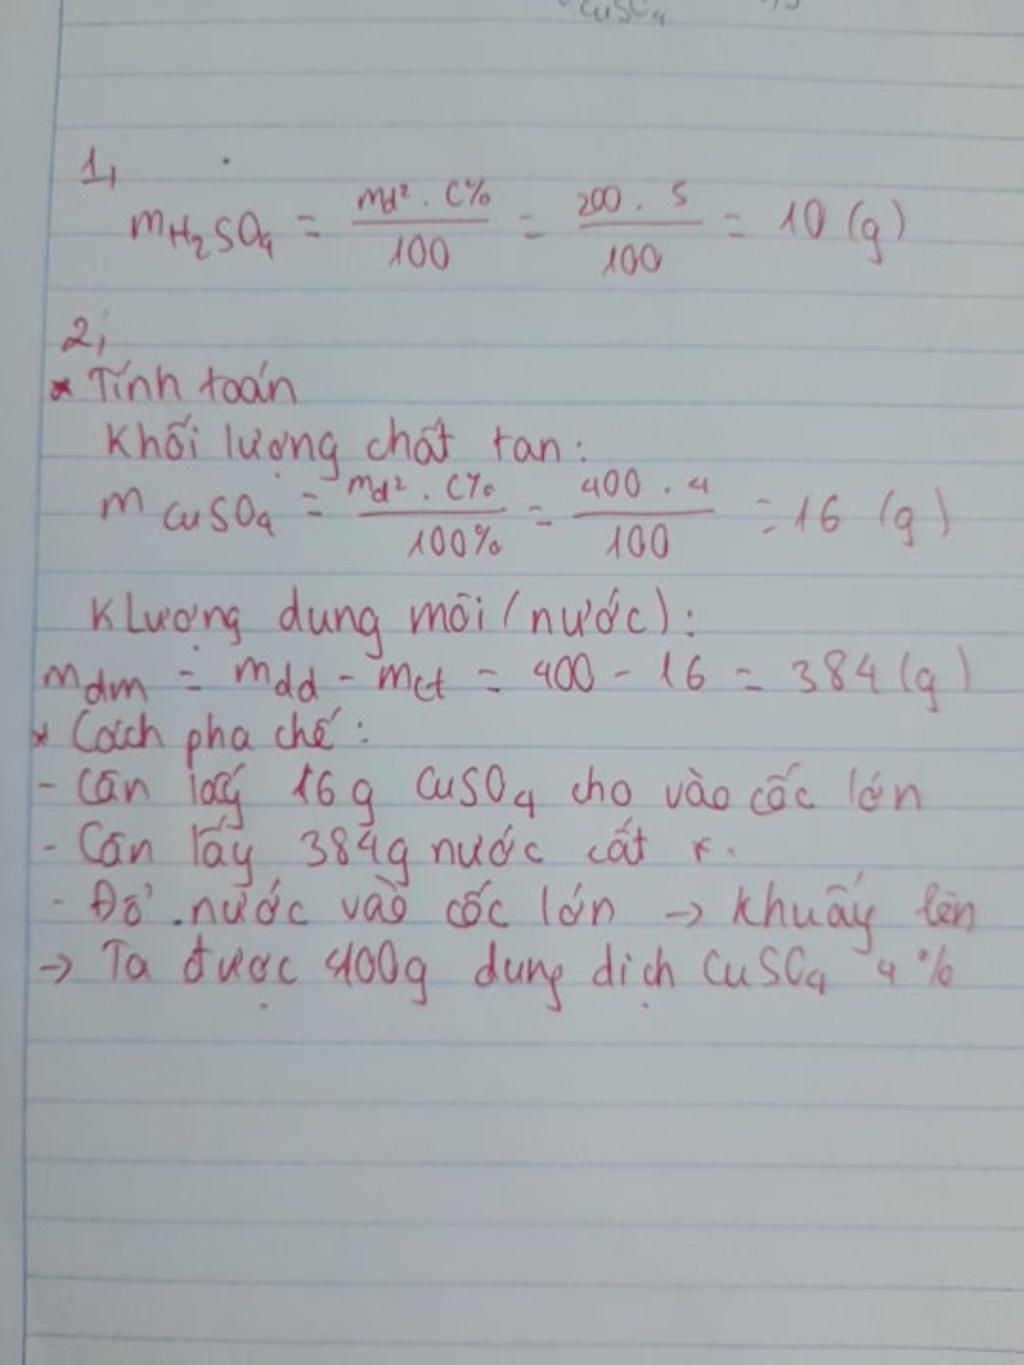 CuSO4
1,
mH2SO4 = md². C% / 100 = 200 . 5 / 100 = 10 (g)
2,
* Tính toán
Khối lượng chất tan:
m CuSO4 = md². C% / 100% = 400 . 4 / 100 = 16 (g)
K Lượng dung môi (nước):
mdm = mdd - mct = 400 - 16 = 384 (g)
* Cách pha chế:
- Cân lấy 16g CuSO4 cho vào cốc lớn
- Cân lấy 384g nước cất
- Đổ nước vào cốc lớn → khuấy lên
→ Ta được 400g dung dịch CuSO4 4%